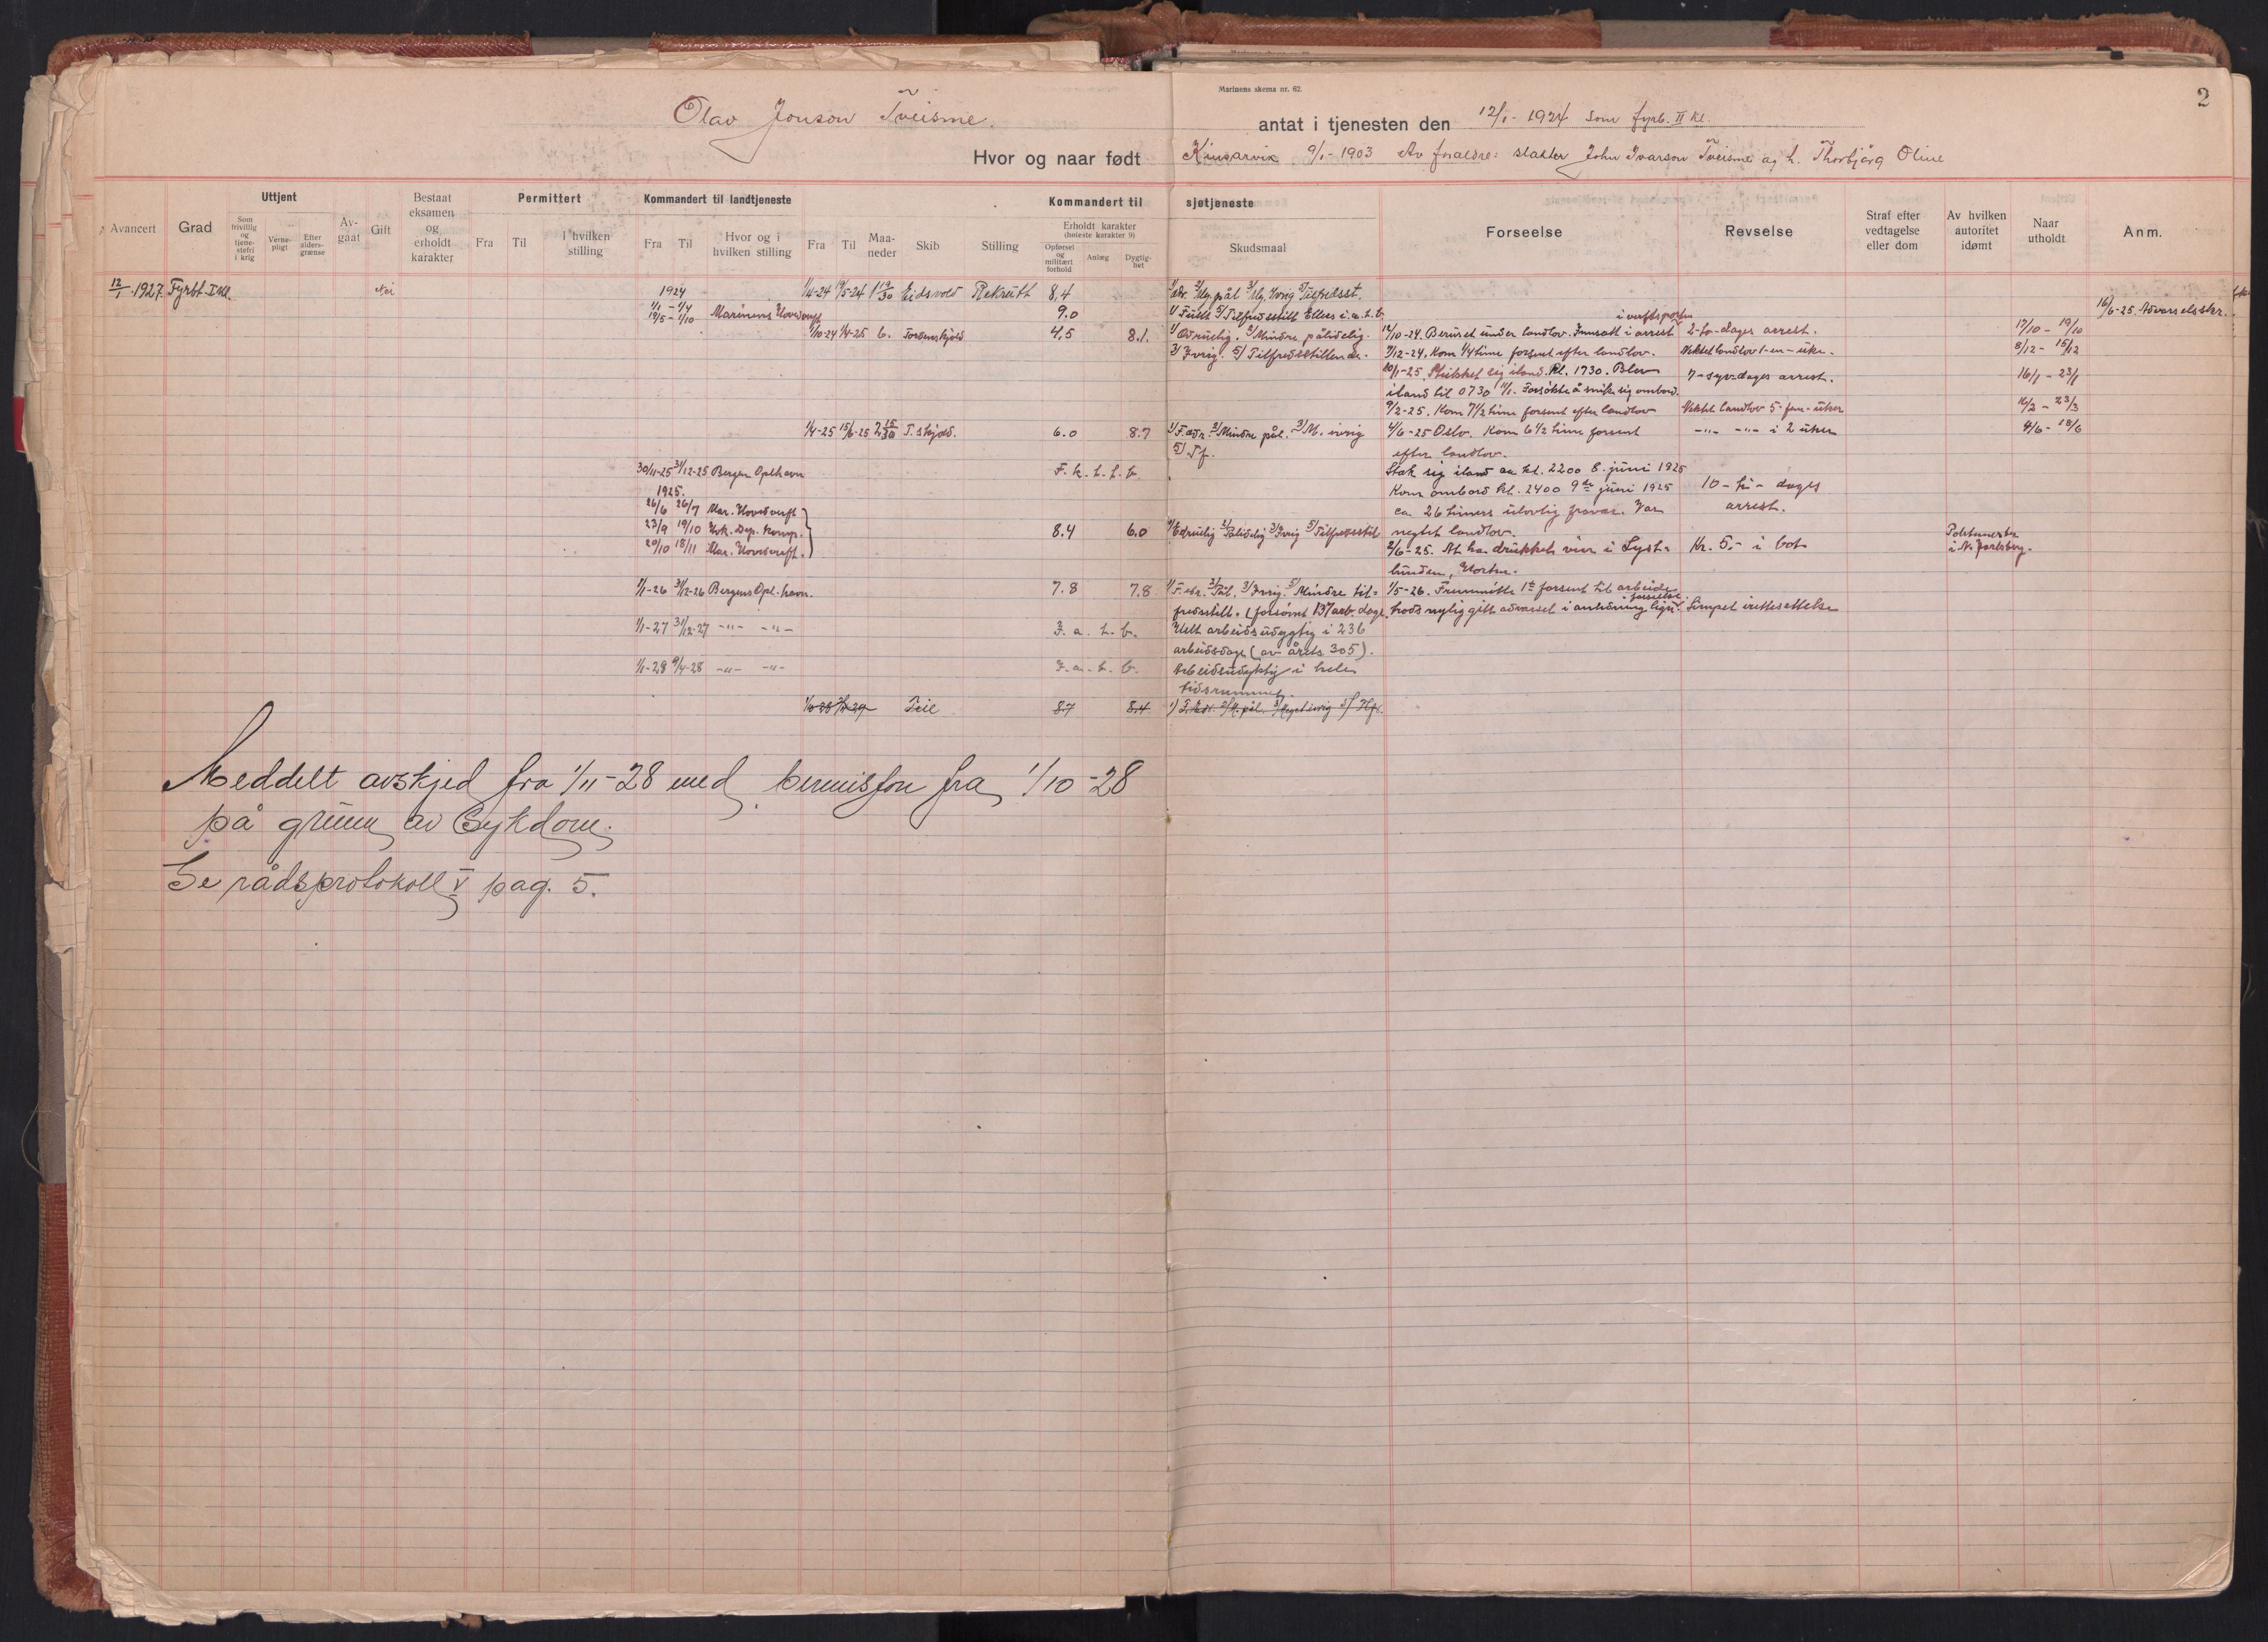 Marinens skema nr. 62.
2
Olav Jonson Tveisme.
antat i tjenesten den 12/1-1924 som fyrb. II kl.
Hvor og naar født Kinsarvik 9/1-1903 Av foraldre: slakter John Ivarson Tveisme og h. Thorbjörg Oline
Uttjent Permittert Kommandert til landtjeneste Kommandert til sjøtjeneste
Avancert Grad Som frivillig og tjenestefri i krig Vernepligt Efter aldersgrænse Avgaat Gift Bestaat eksamen og erholdt karakter Fra Til I hvilken stilling Fra Til Hvor og i hvilken stilling Fra Til Maaneder Skib Stilling Erholdt karakter (høieste karakter 9) Opførsel og militært forhold Anlæg Dygtighet Skudsmaal Forseelse Revselse Straf efter vedtagelse eller dom Av hvilken autoritet idømt Naar utholdt Anm.
12/1-1927 Fyrbt. I kl. Nei 1924 1/4-24 19/5-24 1 19/30 Eidsvold Rekrutt 8,4 1/ædr. 2/Mg. pål 3/Mg. Ivrig 5/Tilfredsst.
1/1 - 1/4
19/5 - 1/10 Marinens Hovedverft 9.0 5/Tilfredsstill Ellers i.a.t.b. i verftsporten 16/6-25. Advarselsskr.
1/10-24 1/4-25 6. Tordenskjold 4,5 8.1. 1/ Ædruelig. 2/Mindre pålidelig. 14/10-24. Beruset under landlov. Innsatt i arrest 2-to-dages arrest. 17/10 - 19/10
3/ Ivrig. 5/ Tilfredsstillende. 7/12-24. Kom 1/4 time forsent efter landlov. Nektet landlov 1-en-uke. 8/12 - 15/12
10/1-25. Stukket sig iland. kl. 1730. Blev 7-syv-dages arrest. 16/1 - 23/1
iland til 0730 11/1. Forsøkte å snike sig ombord.
9/2-25. Kom 7 1/2 time forsent efter landlov Nektet landlov 5-fem-uker
1/4-25 15/6-25 2 15/30 T. skjold. 6.0 8.7 1/ F. ædr. 2/Mindre pål. 3/M. ivrig 4/6-25 Oslo. Kom 6 1/2 time forsent -"- -"- i 2 uker 4/6 - 18/6
5/ Tf. efter landlov.
30/11-25 31/12-25 Bergen Oplhavn F. k. t. t. b. Stak sig iland ca kl. 2200 8. juni 1925
1925. Kom ombord kl. 2400 9de juni 1925 10-ti-dages
26/6 26/7 Mar. Hovedverft ca. 26 timers ulovlig fravær. Var arrest.
23/9 19/10 Hvk. Dep. komp. 8.4 6.0 1/Edruelig 2/Pålidelig 3/Ivrig 5/Tilfredsstil negtet landlov.
20/10 18/11 Mar. Hovedverft. 2/6-25. At ha drukket vin i Lyst- Kr. 5,- i bot Politimester
lunden, Horten. i N. Jarlsberg.
1/1-26 31/12-26 Bergens Opl. havn. 7.8 7.8 1/F. edr. 2/Pål. 3/Ivrig. 5/Mindre til- 1/5-26. Fremmøtte 1t forsent til arbeide
fredsstill. (forsömt 137 arb. dage. trods nylig gitt advarsel i anledning lign. forseelse. Simpel irettesettelse
1/1-27 31/12-27 -"- -"- I. a. t. b. Helt arbeidsudygtig i 236
arbeidsdage (av årets 305).
1/1-28 9/4-28 -"- -"- I. a. t. b. Arbeidsudyktig i hele
tidsrummet.
Teie 8.7 8.4 1) F. Ædr. 2/M. pål. 3/Meget ivrig 5/ Tlf.
Meddelt avskjed fra 1/11-28 med permisjon fra 1/10-28
på grunn av Sykdom.
Se rådsprotokoll V pag. 5.